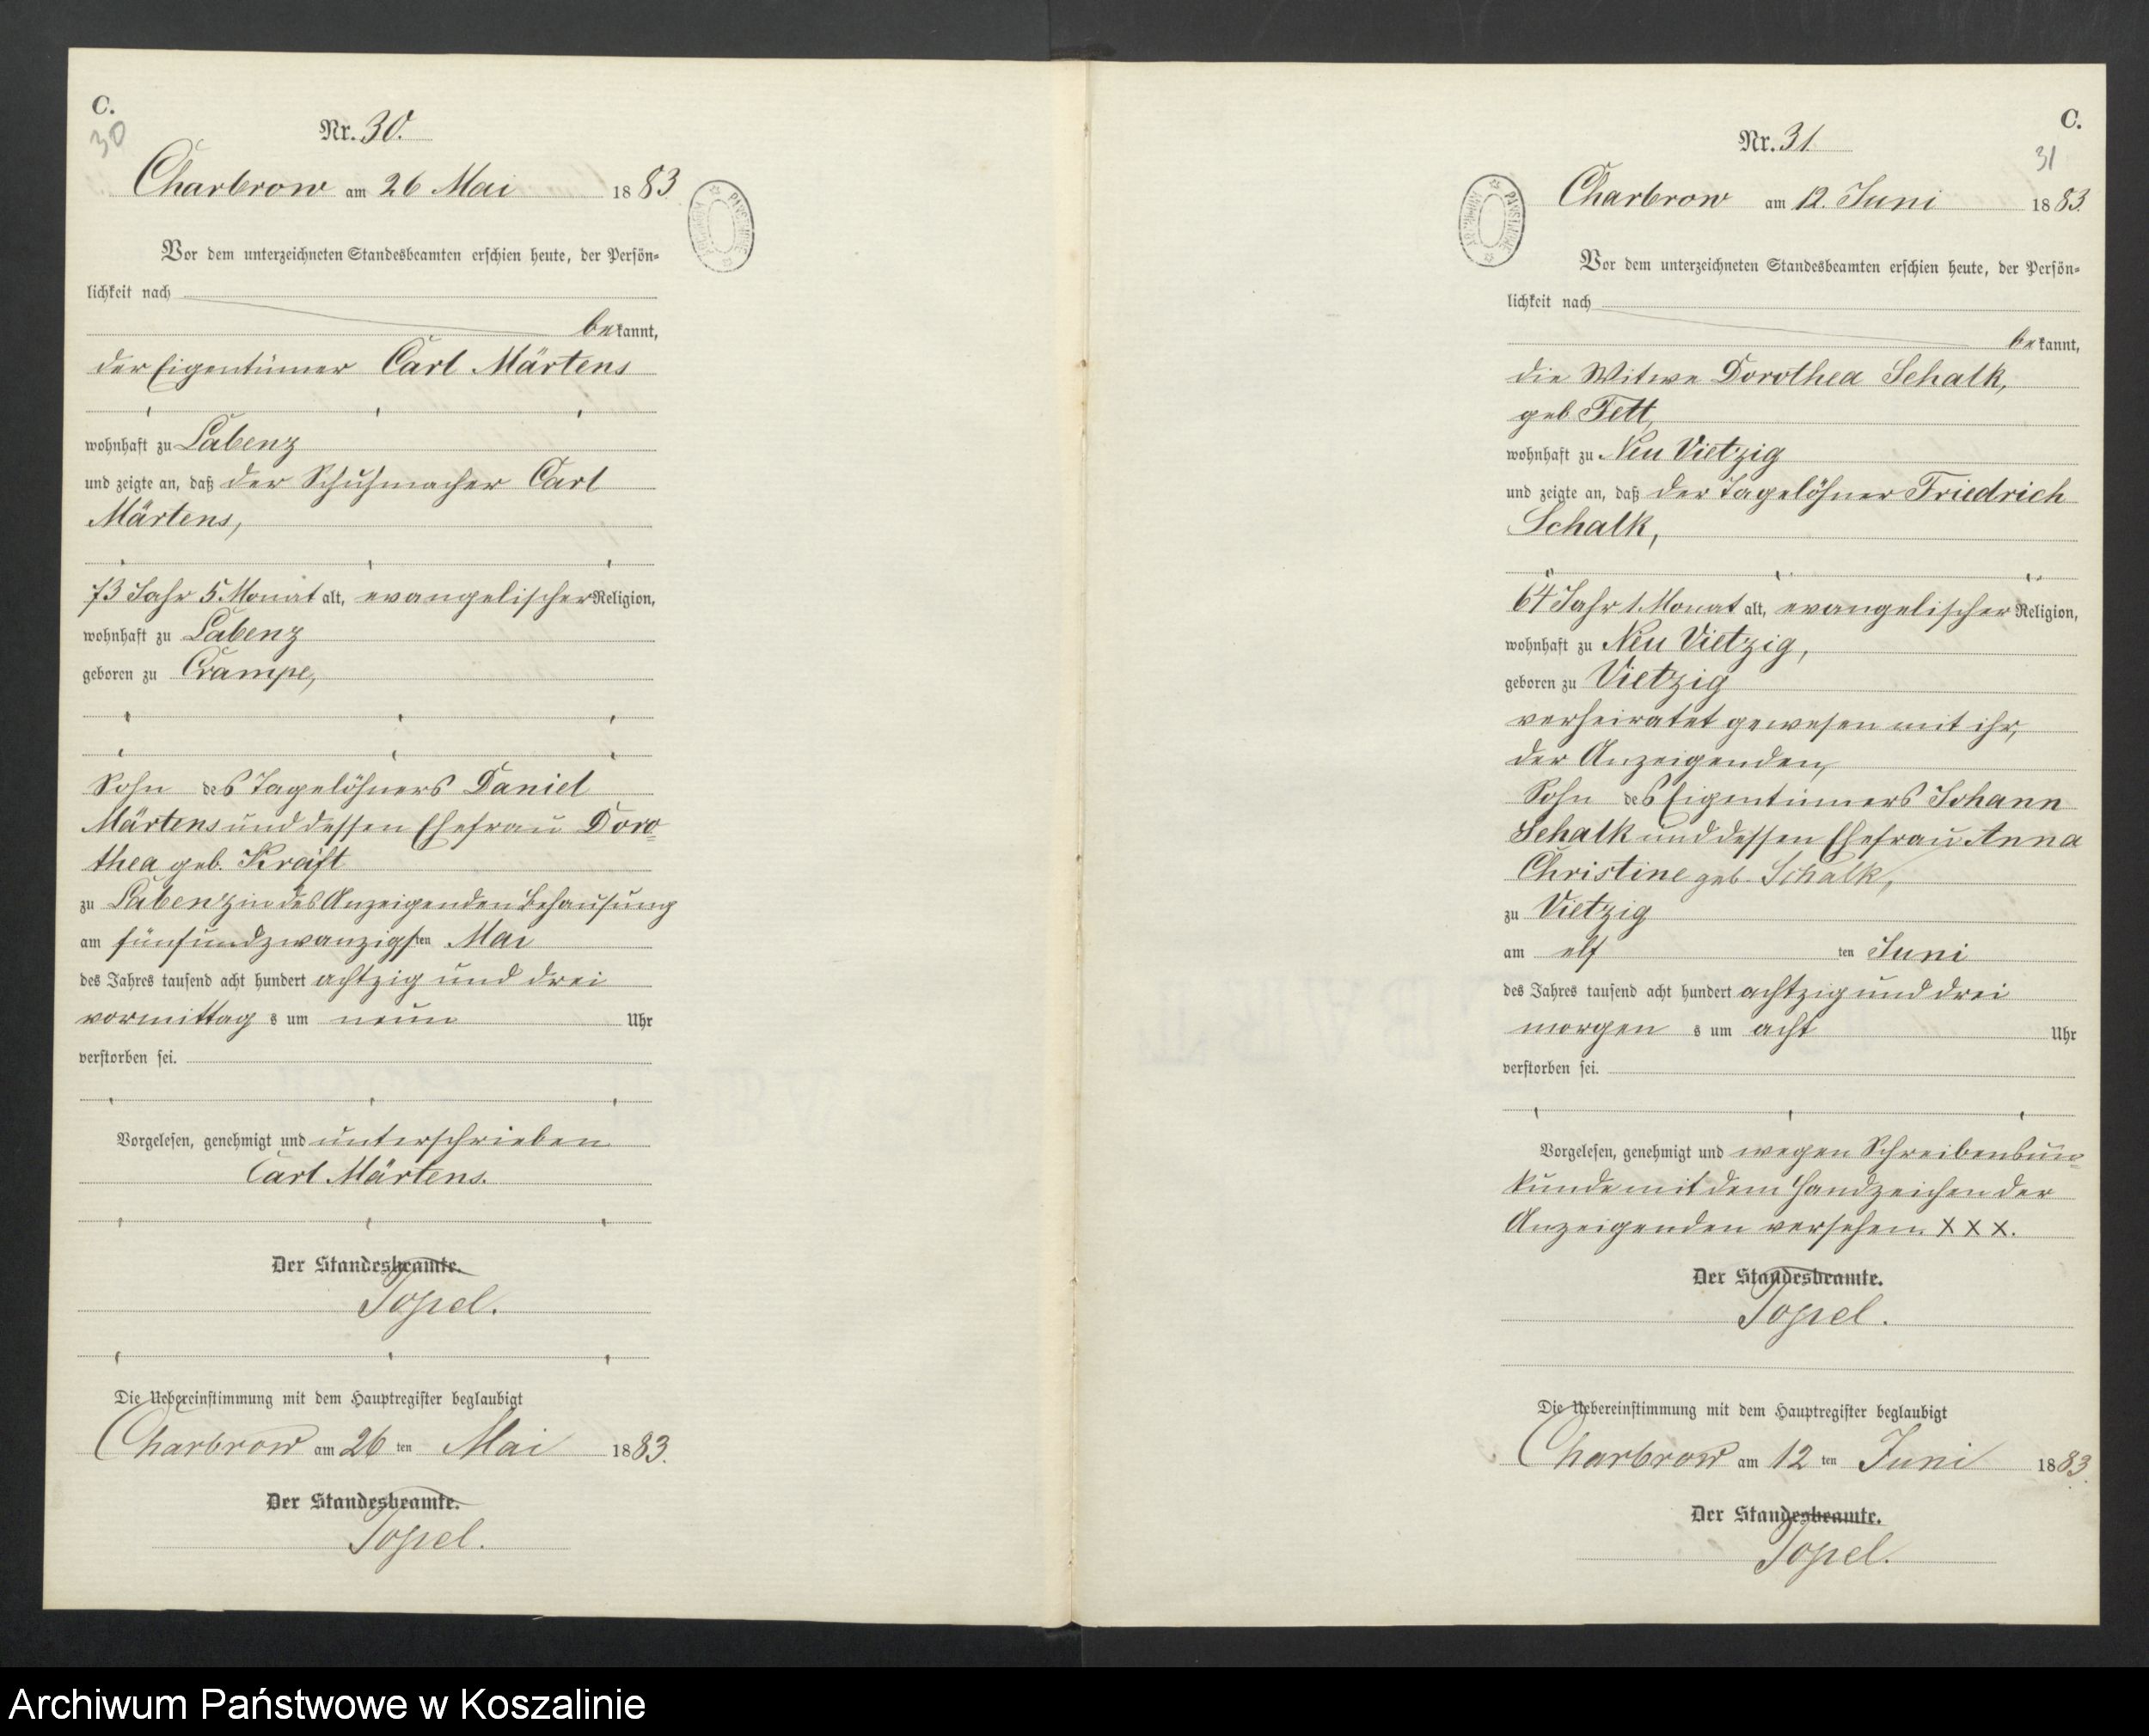 C.
30
Nr. 30.
Charbrow am 26 Mai 1883
Vor dem unterzeichneten Standesbeamten erschien heute, der Persön-
lichkeit nach
bekannt,
der Eigentümer Carl Märtens
wohnhaft zu Labenz
und zeigte an, daß der Schuhmacher Carl
Märtens,
73 Jahr 5 Monat alt, evangelischer Religion,
wohnhaft zu Labenz
geboren zu Crampe,
Sohn des Tagelöhners Daniel
Märtens und dessen Ehefrau Doro-
thea geb. Kräft
zu Labenz in des Anzeigenden Behausung
am fünfundzwanzigsten Mai
des Jahres tausend acht hundert achtzig und drei
vormittags um neun Uhr
verstorben sei.
Vorgelesen, genehmigt und unterschrieben
Carl Märtens.
Der Standesbeamte.
Topel.
Die Uebereinstimmung mit dem Hauptregister beglaubigt
Charbrow am 26ten Mai 1883.
Der Standesbeamte.
Topel.
ARCHIWUM PAŃSTWOWE
C.
31
Nr. 31
Charbrow am 12. Juni 1883.
Vor dem unterzeichneten Standesbeamten erschien heute, der Persön-
lichkeit nach
bekannt,
die Witwe Dorothea Schalk,
geb. Tett,
wohnhaft zu Neu Vietzig
und zeigte an, daß der Tagelöhner Friedrich
Schalk,
64 Jahr 1 Monat alt, evangelischer Religion,
wohnhaft zu Neu Vietzig,
geboren zu Vietzig
verheiratet gewesen mit ihr,
der Anzeigenden,
Sohn des Eigentümers Johann
Schalk und dessen Ehefrau Anna
Christine geb. Schalk,
zu Vietzig
am elften Juni
des Jahres tausend acht hundert achtzig und drei
morgens um acht Uhr
verstorben sei.
Vorgelesen, genehmigt und wegen Schreibensun-
kunde mit dem Handzeichen der
Anzeigenden versehen. X X X.
Der Standesbeamte.
Topel.
Die Uebereinstimmung mit dem Hauptregister beglaubigt
Charbrow am 12ten Juni 1883.
Der Standesbeamte.
Topel.
ARCHIWUM PAŃSTWOWE
Archiwum Państwowe w Koszalinie